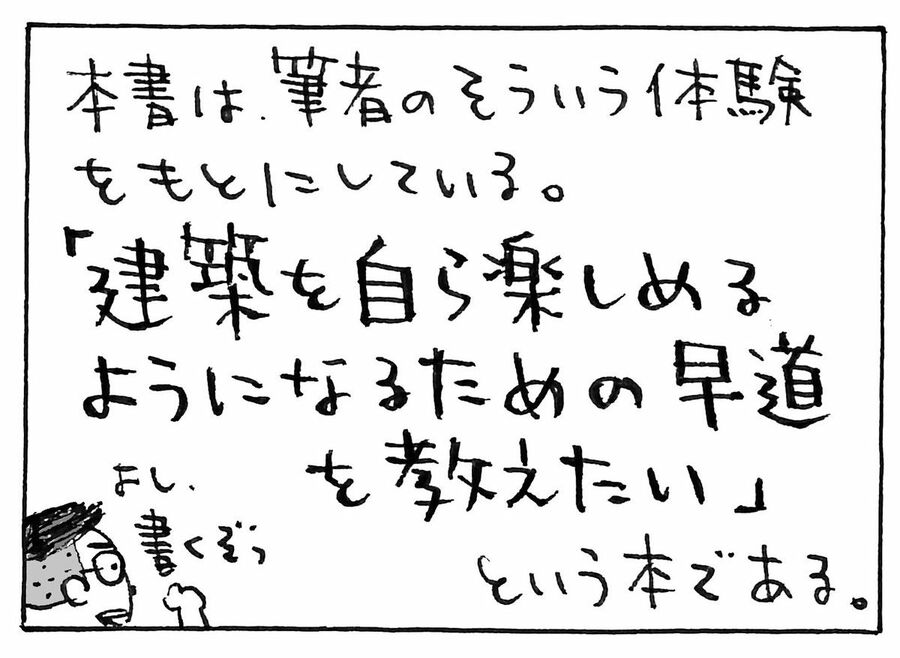 本書は、筆者のそういう体験
をもとにしている。
「建築を自ら楽しめる
ようになるための早道
を教えたい」
という本である。
よし、
書くぞっ